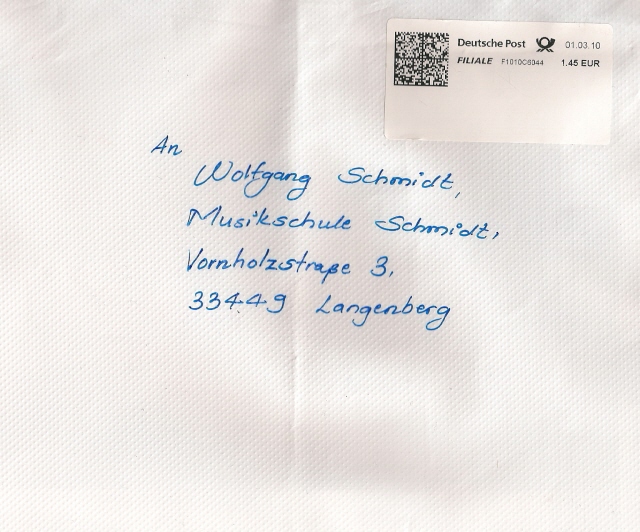 Deutsche Post 01.03.10
FILIALE F1010C6044 1.45 EUR
An
Wolfgang Schmidt,
Musikschule Schmidt,
Vornholzstraße 3,
33449 Langenberg